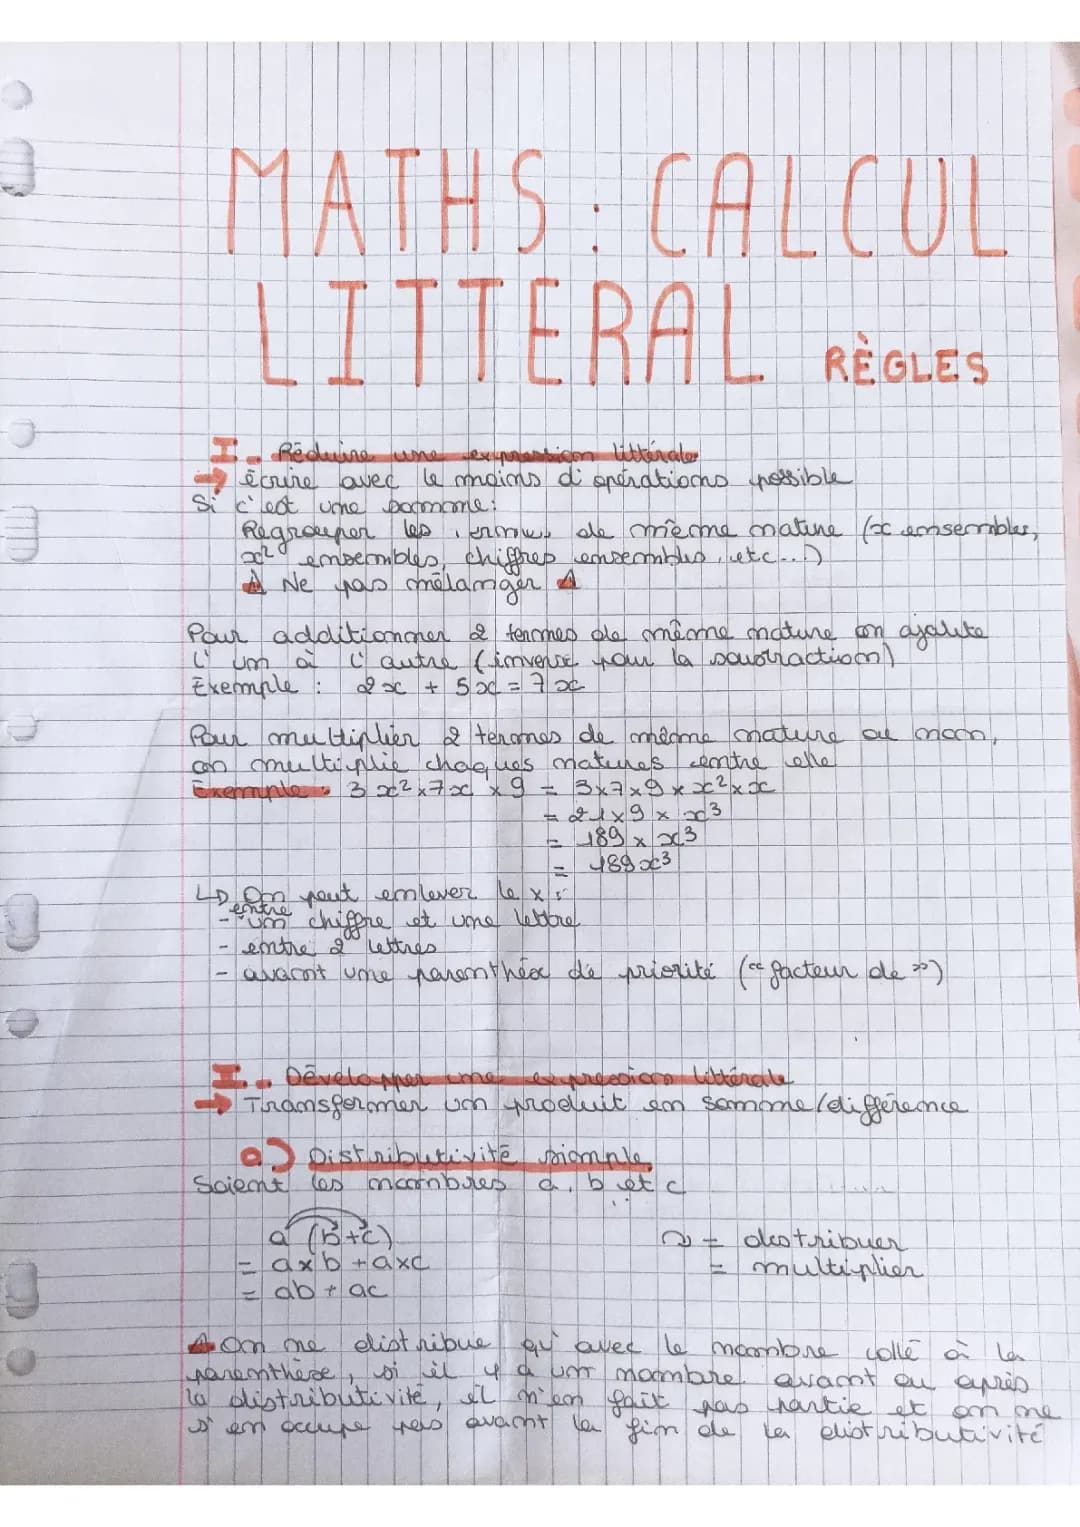 MATHS : CALCUL
LITTERAL RÈGLES
I. Réduire une expression littérale
→ écrire avec le moins d'opérations possible
Si c'est une somme :
Regrouper les termes de même nature (x ensembles,
x² ensembles, chiffres ensembles, etc...)
⚠ Ne pas mélanger ⚠
Pour additionner 2 termes de même nature on ajoute
l'un à l'autre (inverse pour la soustraction)
Exemple : 2x + 5x = 7x
Pour multiplier 2 termes de même nature ou non,
on multiplie chaques natures entre elle
Exemple : 3x² × 7x × 9 = 3×7×9 × x² × x
= 21×9 × x³
= 189 × x³
= 189x³
↳ On peut enlever le × :
- entre un chiffre et une lettre
- entre 2 lettres
- avant une parenthèse de priorité (« facteur de »)
I. Développer une expression littérale
→ Transformer un produit en somme/différence
a) Distributivité simple
Soient les nombres a, b et c
a (b+c)
= a×b + a×c
= ab + ac
↷ = distribuer
= multiplier
⚠ On ne distribue qu'avec le nombre collé à la
parenthèse, si il y a un nombre avant ou après
la distributivité, il n'en fait pas partie et on ne
s'en occupe pas avant la fin de la distributivité